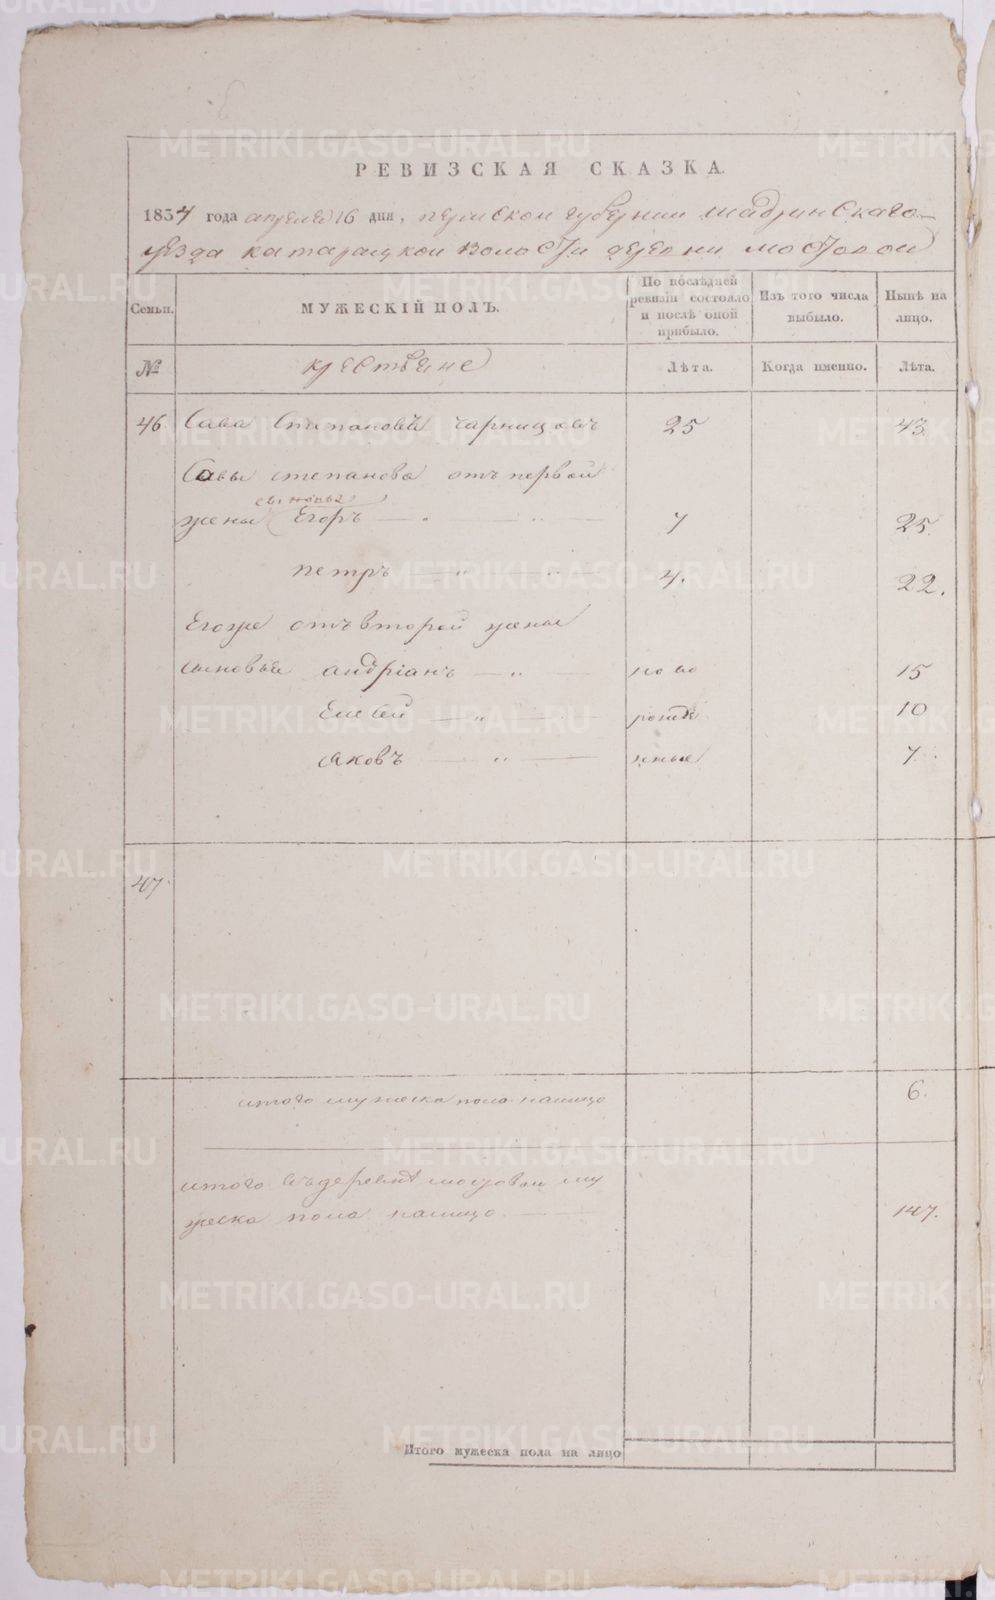 РЕВИЗСКАЯ СКАЗКА.
1834 года апреля 16 дня, пермской губернии шадринскаго
уезда катарацкой волости деревни мостовой
Семьи.
МУЖЕСКІЙ ПОЛЪ.
По послѣдней ревизіи состояло и послѣ оной прибыло.
Изъ того числа выбыло.
Нынѣ на лицо.
№
крестьяне
Лѣта.
Когда именно.
Лѣта.
46 Сава Степановъ 25 43
Савы степанова отъ первой
сыновья
жены Егоръ 7 25.
петръ 4. 22.
Егоже отъ второй жены
сыновья андріанъ ново 15
Елисей рожде 10
яковъ нные 7.
47.
итого мужеска пола налицо 6.
итого въ деревнѣ мостовой му
жеска пола налицо 147.
Итого мужеска пола на лицо
METRIKI.GASO-URAL.RU